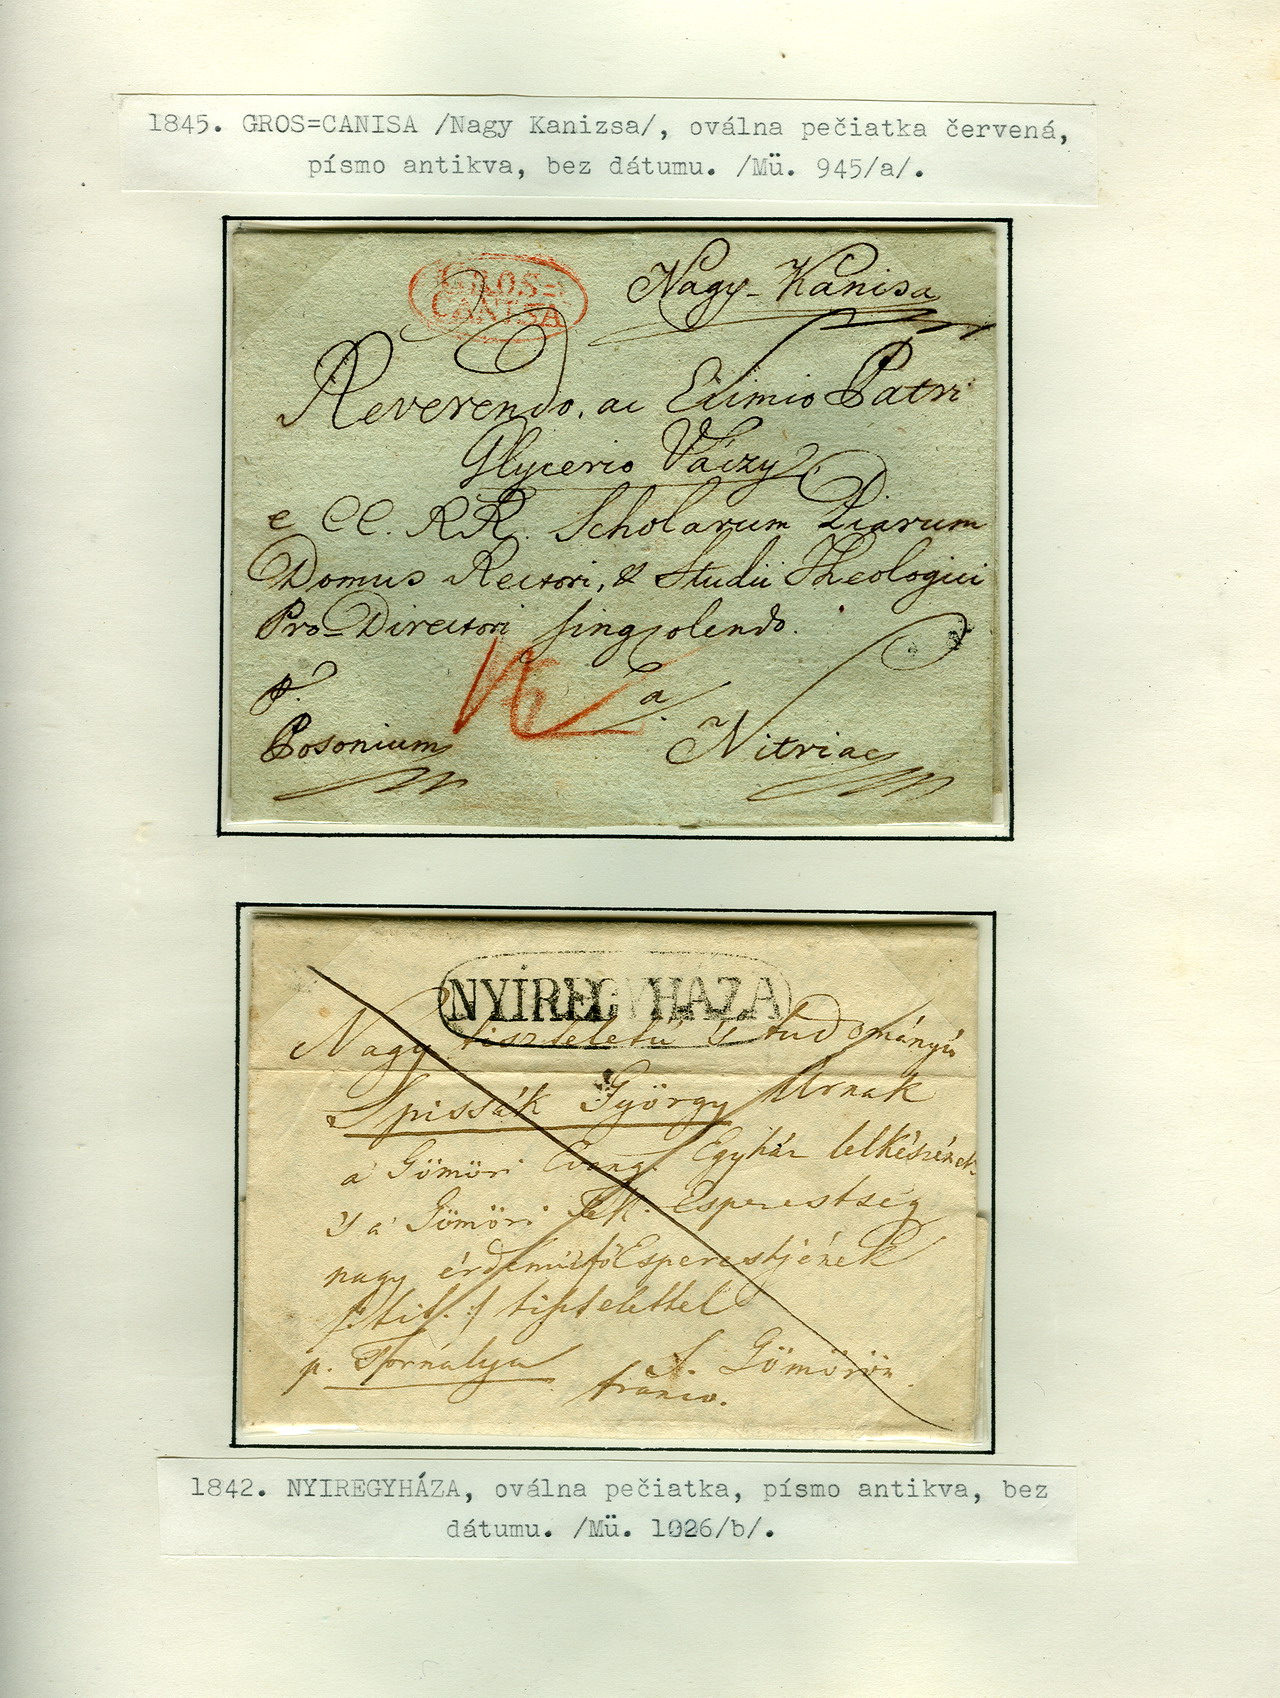 1845. GROS=CANISA /Nagy Kanizsa/, oválna pečiatka červená,
písmo antikva, bez dátumu. /Mü. 945/a/.
GROS=
CANISA
Nagy-Kanisa
Reverendo, ac Eximio Patri
Glycerio Váizy
e CC. RR. Scholarum Piarum
Domus Rectori, & Studii Theologici
Pro-Directori
a
Posonium
Nitriae
NYÍREGYHÁZA
Nagy tiszteletü 's tudományú
Spissák György Urnak
a' Gömöri Evang. Egyház lelkészének
's a' Gömöri Esperestség
nagy érdemü főEsperestjének
/: tit. :/ tisztelettel
p. Tornalya
Gömörön
franco.
1842. NYIREGYHÁZA, oválna pečiatka, písmo antikva, bez
dátumu. /Mü. 1026/b/.